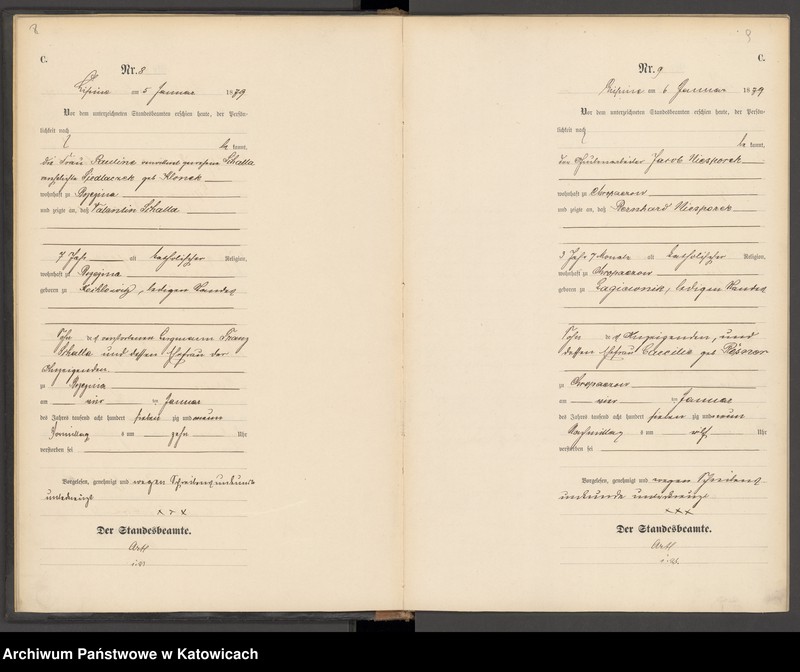 8
C.
Nr. 8
Lipine am 5 Januar 1879
Vor dem unterzeichneten Standesbeamten erschien heute, der Persön-
lichkeit nach
be kannt,
die Frau Paulina verwittwet gewesene Schalla
verehelichte Siedlaczek geb. Klonek
wohnhaft zu
und zeigte an, daß Valentin Schalla
7 Jahr alt katholischer Religion,
wohnhaft zu
geboren zu ledigen Standes
Sohn des verstorbenen Franz
Schalla und dessen Ehefrau der
Anzeigenden
zu
am vier ten Januar
des Jahres tausend acht hundert sieben zig und neun
Vormittag s um zehn Uhr
verstorben sei
Vorgelesen, genehmigt und wegen Schreibensunkunde
unterkreuzt
x x x
Der Standesbeamte.
9
C.
Nr. 9
Lipine am 6 Januar 1879
Vor dem unterzeichneten Standesbeamten erschien heute, der Persön-
lichkeit nach
be kannt,
der Jacob Niesporek
wohnhaft zu Chropaczow
und zeigte an, daß Bernhard Niesporek
3 Jahr 7 Monate alt katholischer Religion,
wohnhaft zu Chropaczow
geboren zu Lagiewnik, ledigen Standes
Sohn des Anzeigenden, und
dessen Ehefrau Caecilie geb.
zu Chropaczow
am vier ten Januar
des Jahres tausend acht hundert sieben zig und neun
Nachmittag s um elf Uhr
verstorben sei
Vorgelesen, genehmigt und wegen Schreibens-
unkunde unterkreuzt
x x x
Der Standesbeamte.
Archiwum Państwowe w Katowicach